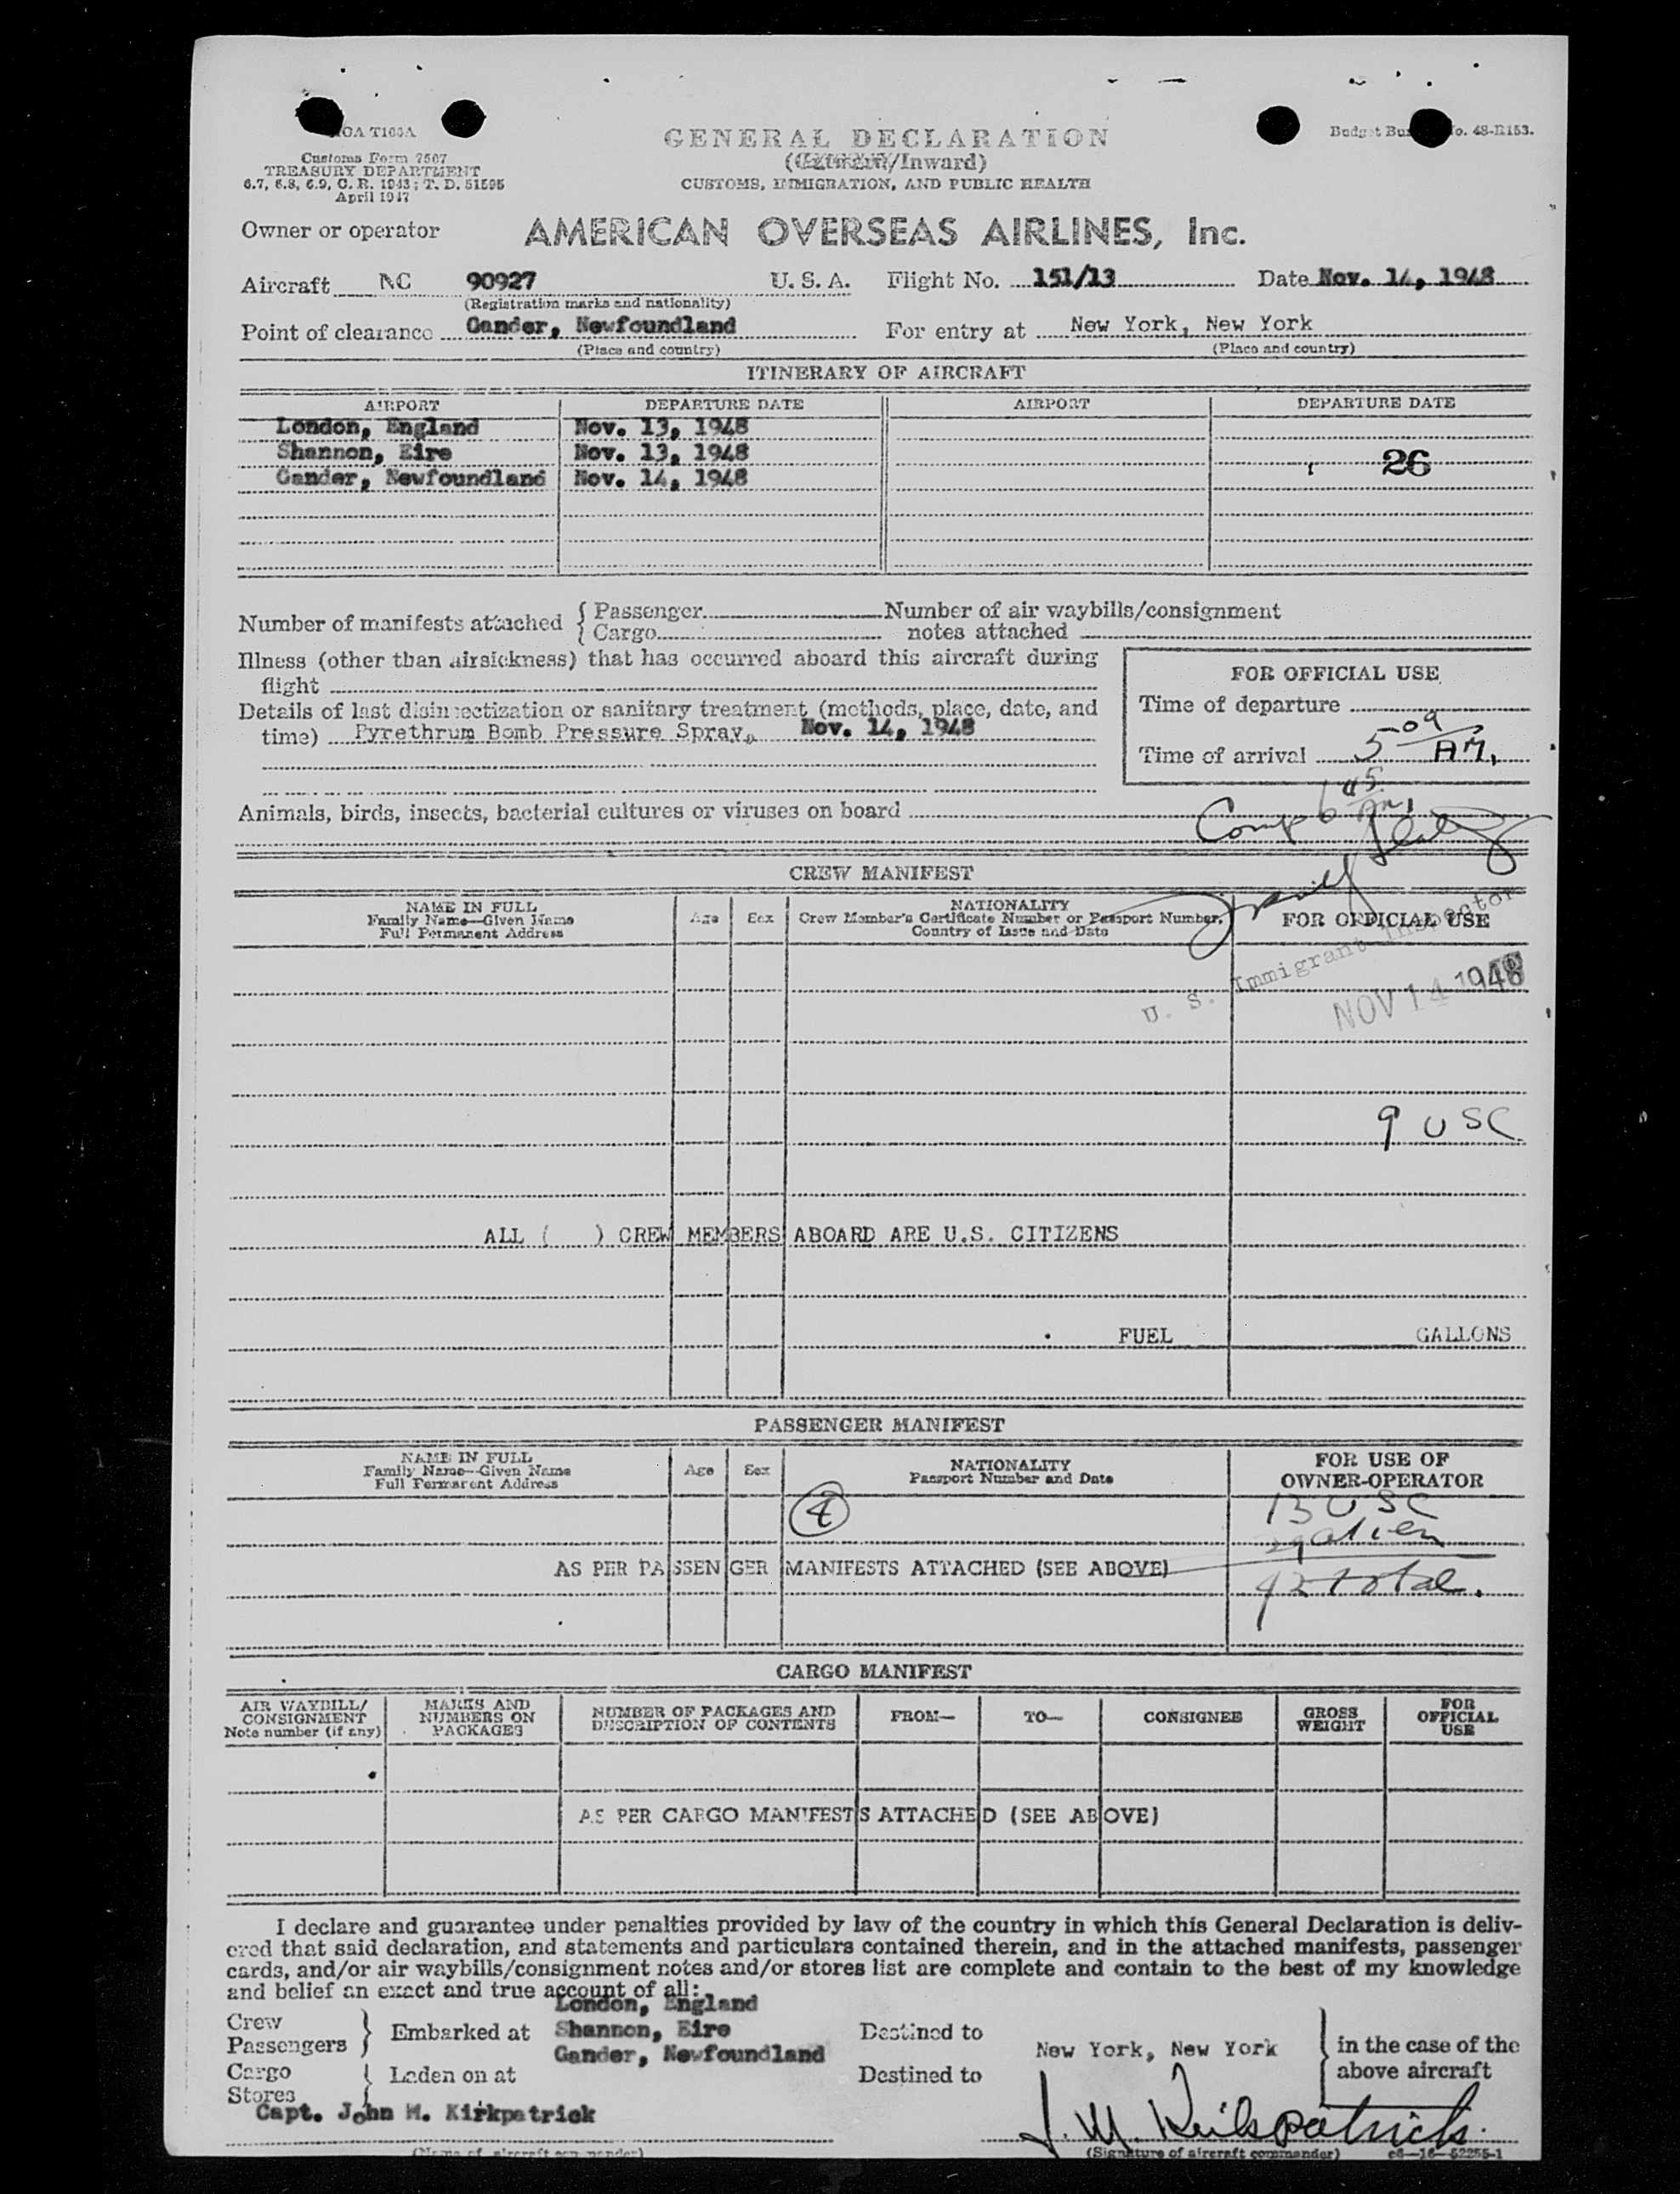 GENERAL DECLARATION
(Outward/Inward)
CUSTOMS, IMMIGRATION, AND PUBLIC HEALTH
Budget Bureau No. 48-R153.
Customs Form 7507
TREASURY DEPARTMENT
6.7, 6.8, 6.9, C. R. 1943; T. D. 51595
April 1947
Owner or operator AMERICAN OVERSEAS AIRLINES, Inc.
Aircraft NC 90927 U. S. A. Flight No. 151/13 Date Nov. 14, 1948
(Registration marks and nationality)
Point of clearance Gander, Newfoundland For entry at New York, New York
(Place and country) (Place and country)
ITINERARY OF AIRCRAFT
AIRPORT DEPARTURE DATE AIRPORT DEPARTURE DATE
London, England Nov. 13, 1948
Shannon, Eire Nov. 13, 1948 26
Gander, Newfoundland Nov. 14, 1948
Number of manifests attached { Passenger Number of air waybills/consignment
{ Cargo notes attached
Illness (other than airsickness) that has occurred aboard this aircraft during
flight
Details of last disinsectization or sanitary treatment (methods, place, date, and
time) Pyrethrum Bomb Pressure Spray, Nov. 14, 1948
FOR OFFICIAL USE
Time of departure
Time of arrival 5 09 AM.
Animals, birds, insects, bacterial cultures or viruses on board
Comp 6 45 Am.
CREW MANIFEST
NAME IN FULL Age Sex NATIONALITY FOR OFFICIAL USE
Family Name—Given Name Crew Member's Certificate Number or Passport Number,
Full Permanent Address Country of Issue and Date
U. S. Immigrant Inspector
NOV 14 1948
9 USC
ALL ( ) CREW MEMBERS ABOARD ARE U.S. CITIZENS
FUEL GALLONS
PASSENGER MANIFEST
NAME IN FULL Age Sex NATIONALITY FOR USE OF
Family Name—Given Name Passport Number and Date OWNER-OPERATOR
Full Permanent Address
4 13 USC
29 alien
AS PER PASSENGER MANIFESTS ATTACHED (SEE ABOVE) 42 total.
CARGO MANIFEST
AIR WAYBILL/ MARKS AND NUMBER OF PACKAGES AND FROM— TO— CONSIGNEE GROSS FOR
CONSIGNMENT NUMBERS ON DESCRIPTION OF CONTENTS WEIGHT OFFICIAL
Note number (if any) PACKAGES USE
AS PER CARGO MANIFESTS ATTACHED (SEE ABOVE)
I declare and guarantee under penalties provided by law of the country in which this General Declaration is deliv-
ered that said declaration, and statements and particulars contained therein, and in the attached manifests, passenger
cards, and/or air waybills/consignment notes and/or stores list are complete and contain to the best of my knowledge
and belief an exact and true account of all:
London, England
Crew
Passengers } Embarked at Shannon, Eire Destined to
Gander, Newfoundland New York, New York } in the case of the
Cargo } Laden on at Destined to above aircraft
Stores
Capt. John M. Kirkpatrick J. M. Kirkpatrick.
(Name of aircraft commander) (Signature of aircraft commander) c6—16—52255-1